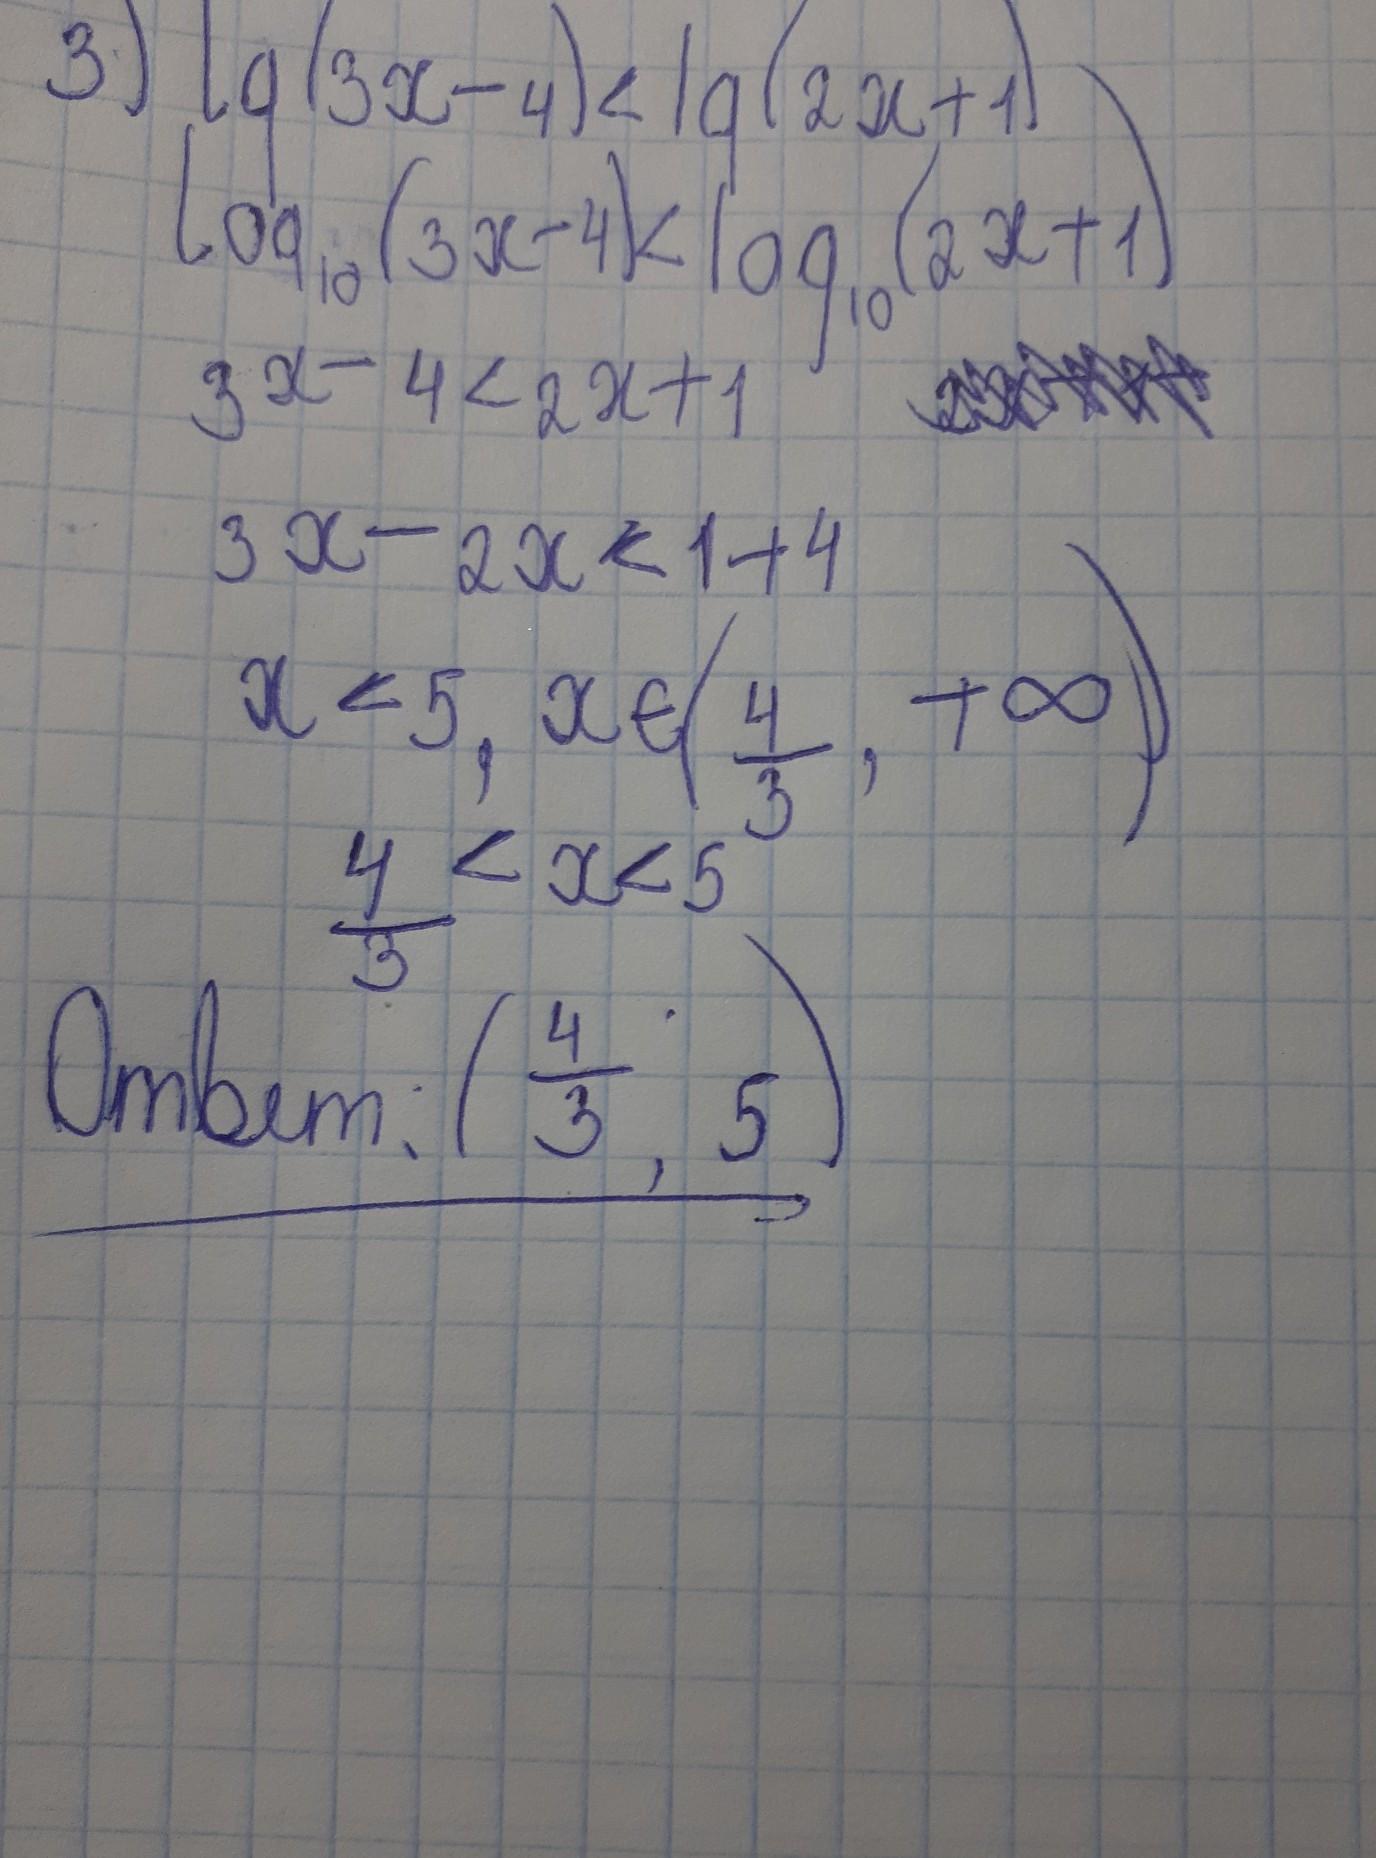 3) lg(3x-4)<lg(2x+1)
log₁₀(3x-4)<log₁₀(2x+1)
3x-4<2x+1
3x-2x<1+4
x<5, x∈(4/3, +∞)
4/3<x<5
Ответ: (4/3, 5)